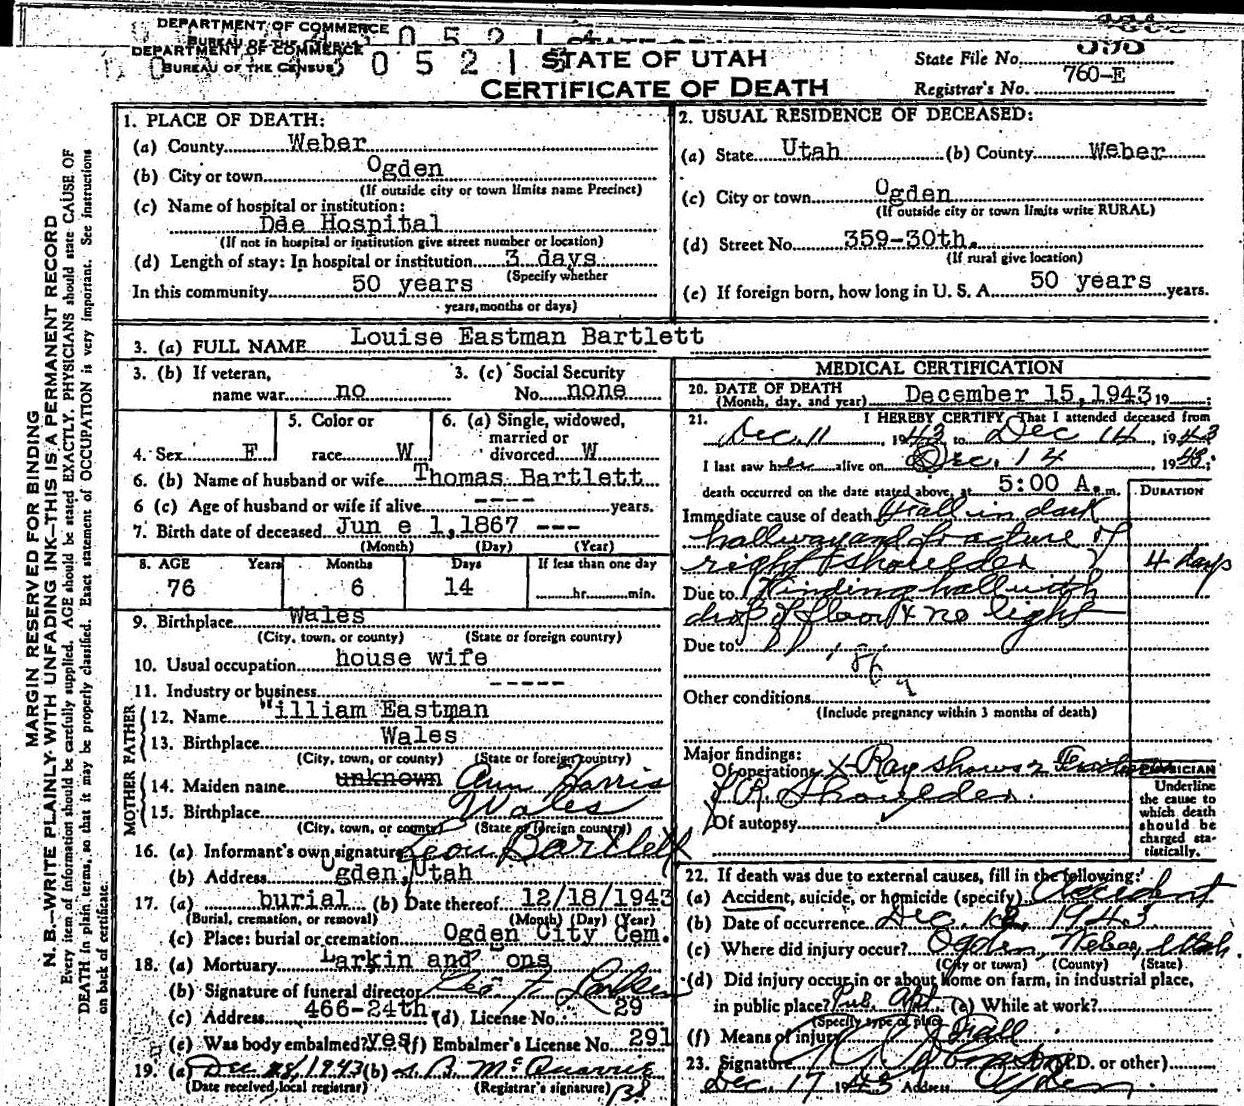 DEPARTMENT OF COMMERCE
BUREAU OF THE CENSUS
DEPARTMENT OF COMMERCE
BUREAU OF THE CENSUS
0 5 2 1
STATE OF UTAH
CERTIFICATE OF DEATH
State File No.
Registrar's No. 760-E
MARGIN RESERVED FOR BINDING
N. B.—WRITE PLAINLY WITH UNFADING INK—THIS IS A PERMANENT RECORD
Every item of information should be carefully supplied. AGE should be stated EXACTLY. PHYSICIANS should state CAUSE OF
DEATH in plain terms, so that it may be properly classified. Exact statement of OCCUPATION is very important. See instructions
on back of certificate.
1. PLACE OF DEATH:
(a) County Weber
(b) City or town Ogden
(If outside city or town limits name Precinct)
(c) Name of hospital or institution:
Dee Hospital
(If not in hospital or institution give street number or location)
(d) Length of stay: In hospital or institution 3 days
(Specify whether
In this community 50 years
years, months or days)
2. USUAL RESIDENCE OF DECEASED:
(a) State Utah (b) County Weber
(c) City or town Ogden
(If outside city or town limits write RURAL)
(d) Street No. 359-30th.
(If rural give location)
(e) If foreign born, how long in U. S. A. 50 years years.
3. (a) FULL NAME Louise Eastman Bartlett
3. (b) If veteran, name war no
3. (c) Social Security No. none
4. Sex F
5. Color or race W
6. (a) Single, widowed, married or divorced W
6. (b) Name of husband or wife Thomas Bartlett
6 (c) Age of husband or wife if alive ---- years.
7. Birth date of deceased Jun e 1,1867 ---
(Month) (Day) (Year)
8. AGE Years Months Days If less than one day
76 6 14 hr. min.
9. Birthplace Wales
(City, town, or county) (State or foreign country)
10. Usual occupation house wife
11. Industry or business -----
FATHER
12. Name William Eastman
13. Birthplace Wales
(City, town, or county) (State or foreign country)
MOTHER
14. Maiden name unknown Ann Harris
15. Birthplace Wales
(City, town, or county) (State or foreign country)
16. (a) Informant's own signature Leon Bartlett
(b) Address Ogden, Utah
17. (a) burial (b) Date thereof 12/18/1943
(Burial, cremation, or removal) (Month) (Day) (Year)
(c) Place: burial or cremation Ogden City Cem.
18. (a) Mortuary Larkin and ons
(b) Signature of funeral director Geo F Larkin
(c) Address 466-24th (d) License No. 29
(e) Was body embalmed? yes (f) Embalmer's License No. 291
19. (a) Dec 1943 (b) McQuarrie
(Date received local registrar) (Registrar's signature)
MEDICAL CERTIFICATION
20. DATE OF DEATH
(Month, day, and year) December 15,1943 19
21. I HEREBY CERTIFY, That I attended deceased from
Dec. 11, 1943 to Dec 14, 1943
I last saw her alive on Dec. 14 1943;
death occurred on the date stated above, at 5:00 A.m.
DURATION
Immediate cause of death Fall in dark
hallway and fracture of
right shoulder 4 days
Due to Winding hall with
drop of floor & no light
Due to
186
9
Other conditions
(Include pregnancy within 3 months of death)
Major findings:
Of operations X-Ray shows Fracture
of R. Shoulder
Of autopsy
PHYSICIAN
Underline
the cause to
which death
should be
charged sta-
tistically.
22. If death was due to external causes, fill in the following:
(a) Accident, suicide, or homicide (specify) Accident
(b) Date of occurrence Dec. 1943
(c) Where did injury occur? Ogden, Weber, Utah
(City or town) (County) (State)
(d) Did injury occur in or about home on farm, in industrial place,
in public place? Pub. Apt (e) While at work?
(Specify type of place)
(f) Means of injury Fall
23. Signature (M.D. or other)
Dec. 17 1943 Address Ogden